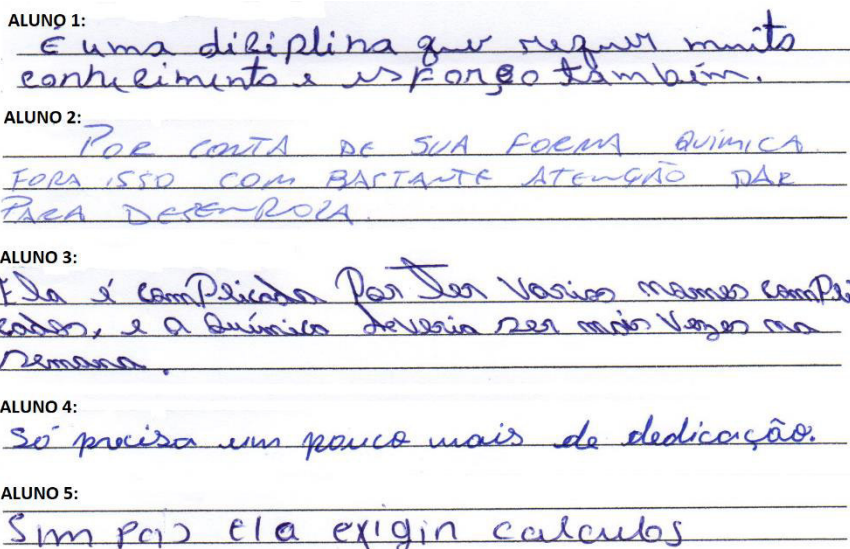 ALUNO 1:
É uma diciplina que requer muito
conhecimento e esforço também.
ALUNO 2:
POR CONTA DE SUA FORMA QUÍMICA
FORA ISSO COM BASTANTE ATENÇÃO DAR
PARA DESENROLA.
ALUNO 3:
Ela é complicada Por ter Varios nomes compli
cados, e a Química deveria ser mais vezes na
semana.
ALUNO 4:
Só precisa um pouco mais de dedicação.
ALUNO 5:
Sim pois ela exigin calculos